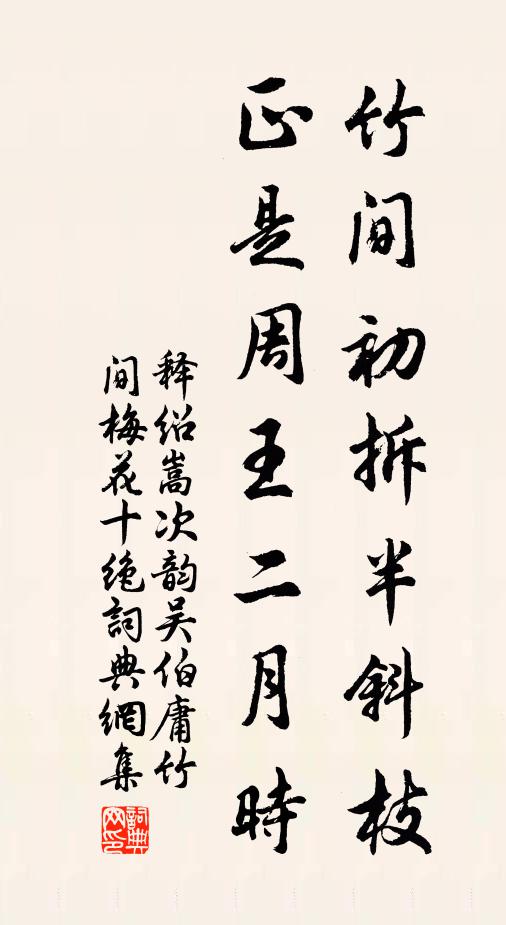 竹间初拆半斜枝
正是周王二月時
释绍嵩次韵吴伯庸竹
间梅花十绝詞典網集
詞典
网印